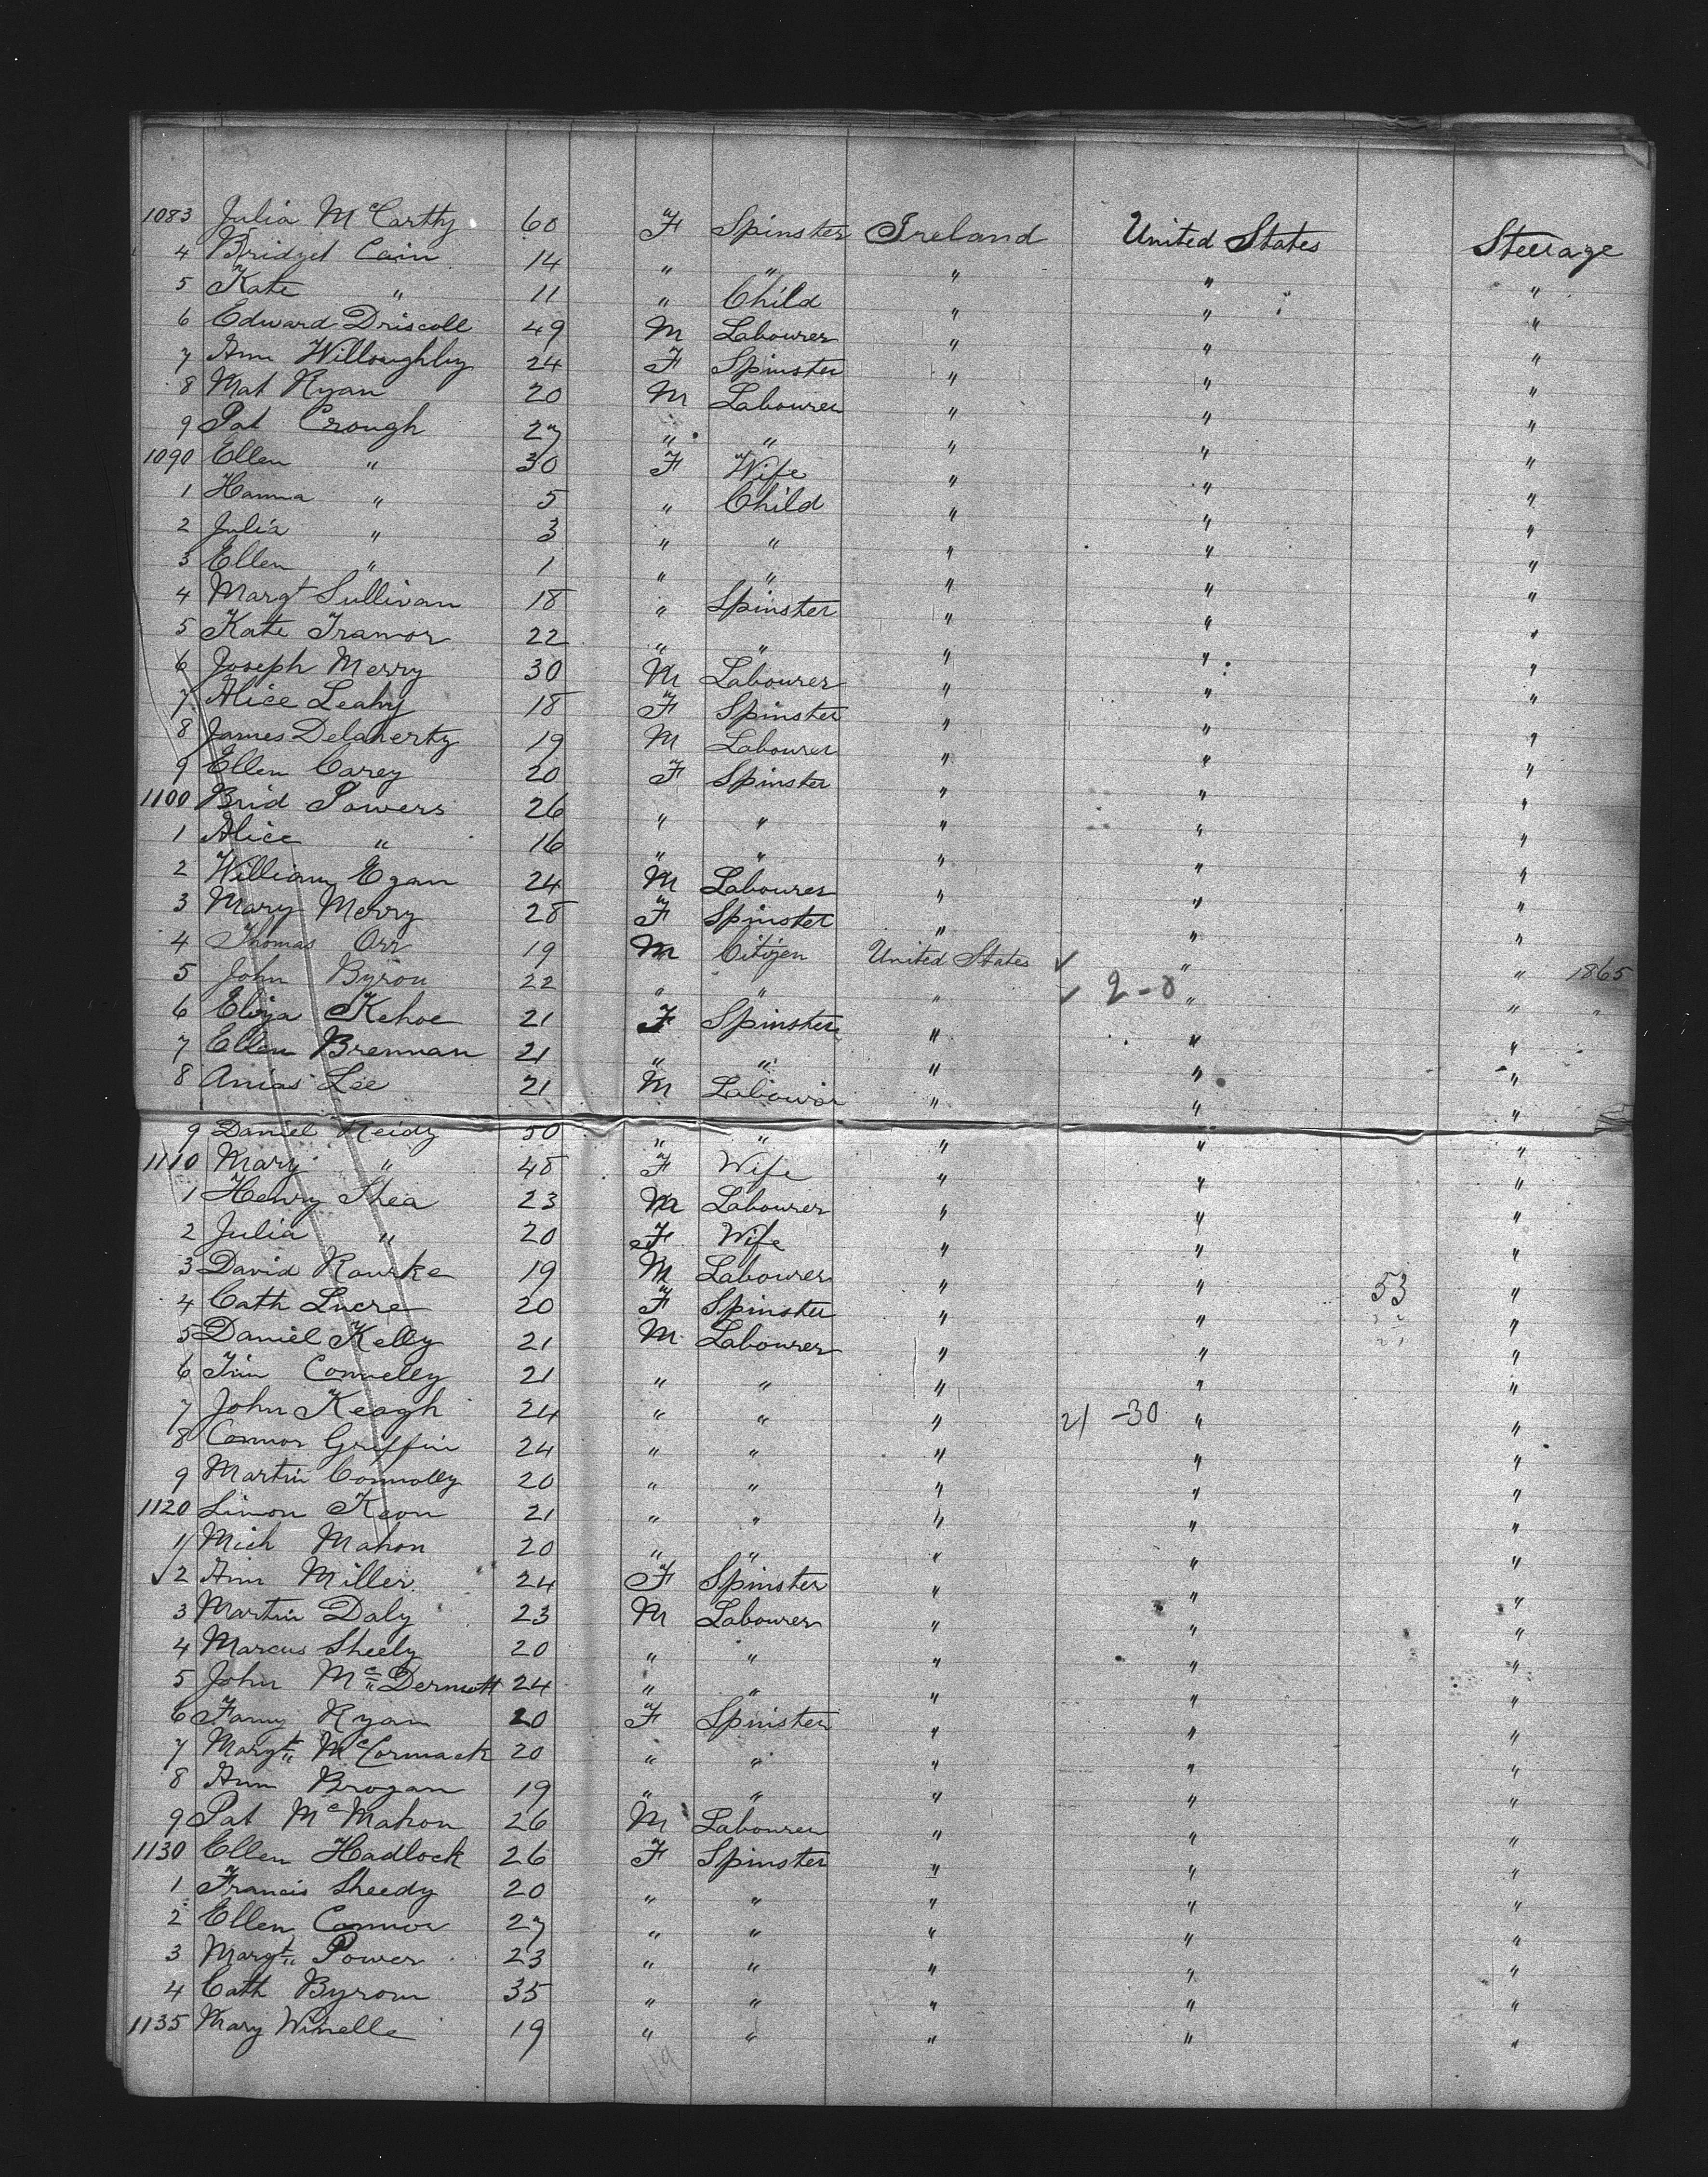 1083 Julia McCarthy 60 F Spinster Ireland United States Steerage
4 Bridget Cain 14 " " " " "
5 Kate " 11 " Child " " "
6 Edward Driscoll 49 M Labourer " " "
7 Ann Willoughby 24 F Spinster " " "
8 Mat Ryan 20 M Labourer " " "
9 Pat Crough 27 " " " " "
1090 Ellen " 30 F Wife " " "
1 Hanna " 5 " Child " " "
2 Julia " 3 " " " " "
3 Ellen " 1 " " " " "
4 Margt Sullivan 18 " Spinster " " "
5 Kate Tramor 22 " " " " "
6 Joseph Merry 30 M Labourer " " "
7 Alice Leahy 18 F Spinster " " "
8 James Delaherty 19 M Labourer " " "
9 Ellen Carey 20 F Spinster " " "
1100 Brid Powers 26 " " " " "
1 Alice " 16 " " " " "
2 William Egan 24 M Labourer " " "
3 Mary Merry 28 F Spinster " " "
4 Thomas Orr 19 M Citizen United States ✓ " " 1865
5 John Byron 22 " " " ✓ 2-0 " " "
6 Eliza Kehoe 21 F Spinster " " "
7 Ellen Brennan 21 " " " " "
8 Lee 21 M Labourer " " "
9 Daniel Reidy 50 " " " " "
1110 Mary " 48 F Wife " " "
1 Henry Shea 23 M Labourer " " "
2 Julia " 20 F Wife " " "
3 David Rourke 19 M Labourer " " 53 "
4 Cath Lucre 20 F Spinster " " "
5 Daniel Kelly 21 M Labourer " " "
6 Tim Connelly 21 " " " " "
7 John Keagh 24 " " " 21 -30 " "
8 Connor Griffin 24 " " " " "
9 Martin Connolly 20 " " " " "
1120 Simon Keon 21 " " " " "
1 Mich Mahon 20 " " " " "
✓2 Ann Miller 24 F Spinster " " "
3 Martin Daly 23 M Labourer " " "
4 Marcus Sheely 20 " " " " "
5 John McDermott 24 " " " " "
6 Fanny Ryan 20 F Spinster " " "
7 Margt McCormack 20 " " " " "
8 Ann Brogan 19 " " " " "
9 Pat McMahon 26 M Labourer " " "
1130 Ellen Hadlock 26 F Spinster " " "
1 Francis Sheedy 20 " " " " "
2 Ellen Connor 27 " " " " "
3 Margt Power 23 " " " " "
4 Cath Byrom 35 " " " " "
1135 Mary Winelle 19 " " " " "
119